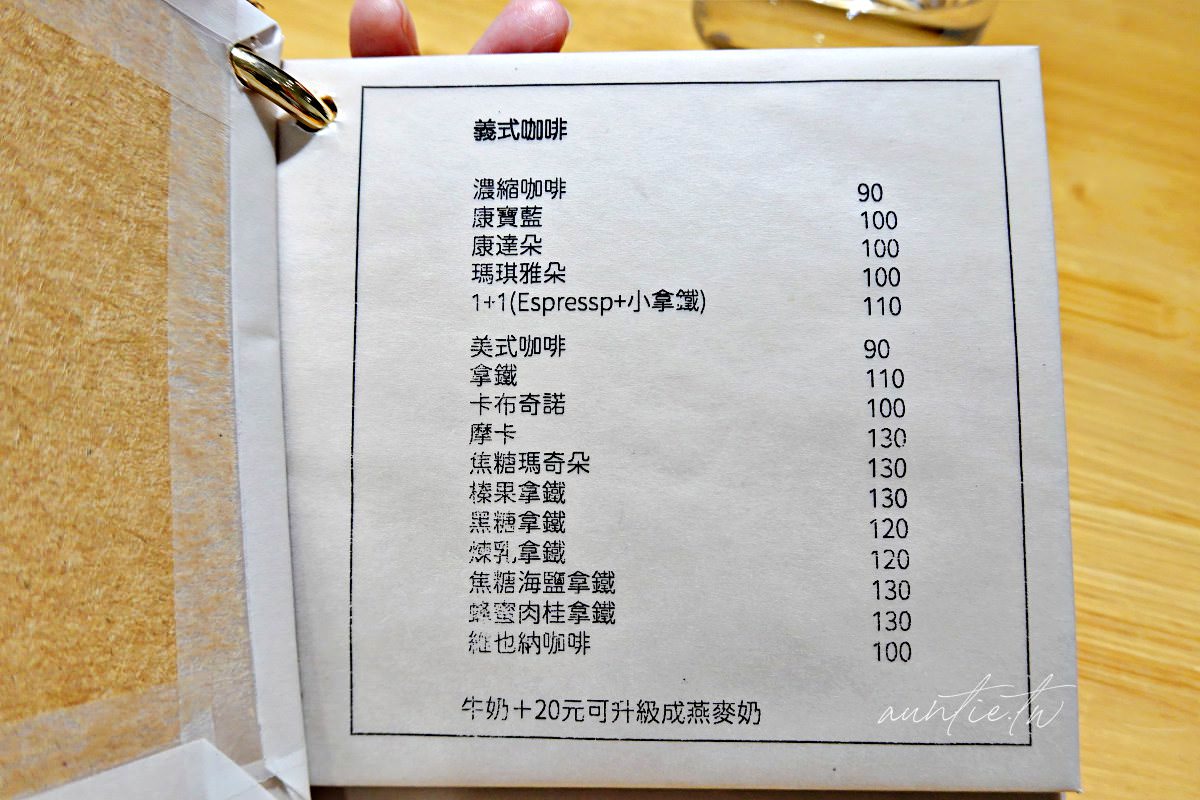 義式咖啡
濃縮咖啡 90
康寶藍 100
康達朵 100
瑪琪雅朵 100
1+1(Espressp+小拿鐵) 110
美式咖啡 90
拿鐵 110
卡布奇諾 100
摩卡 130
焦糖瑪奇朵 130
榛果拿鐵 130
黑糖拿鐵 120
煉乳拿鐵 120
焦糖海鹽拿鐵 130
蜂蜜肉桂拿鐵 130
維也納咖啡 100
牛奶+20元可升級成燕麥奶
auntie.tw